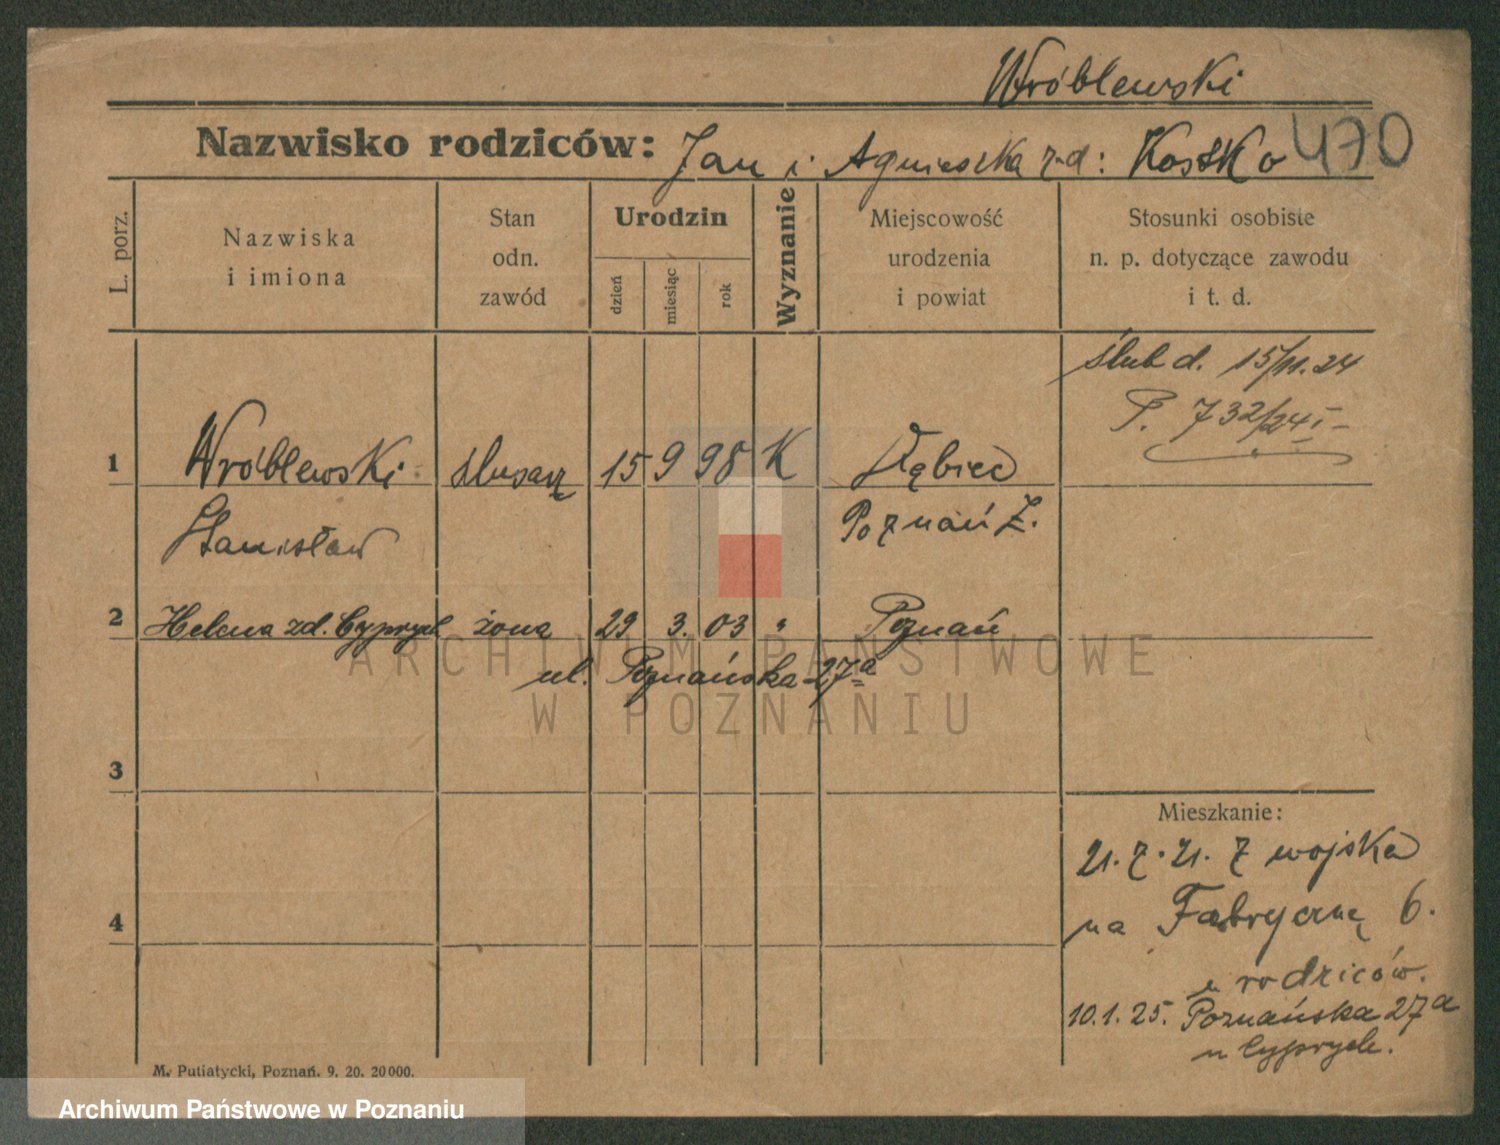 Wróblewski
Nazwisko rodziców: Jan i Agnieszka z d: Kostka 470
L. porz.
Nazwiska
i imiona
Stan
odn.
zawód
Urodzin
dzień
miesiąc
rok
Wyznanie
Miejscowość
urodzenia
i powiat
Stosunki osobiste
n. p. dotyczące zawodu
i t. d.
ślub d. 15/11.24
P. 732/24 I
1 Wróblewski ślusarz 15 9 98 K Dębiec
Stanisław Poznań Z.
2 Helena zd. Cyprych żona 29 3. 03 " Poznań
ul. Poznańska 27a
3
4
Mieszkanie:
21.7.21. Z wojska
na Fabryczną 6.
u rodziców.
10.1.25. Poznańska 27a
u Cyprych.
M. Putiatycki, Poznań. 9. 20. 20000.
ARCHIWUM PAŃSTWOWE
W POZNANIU
Archiwum Państwowe w Poznaniu